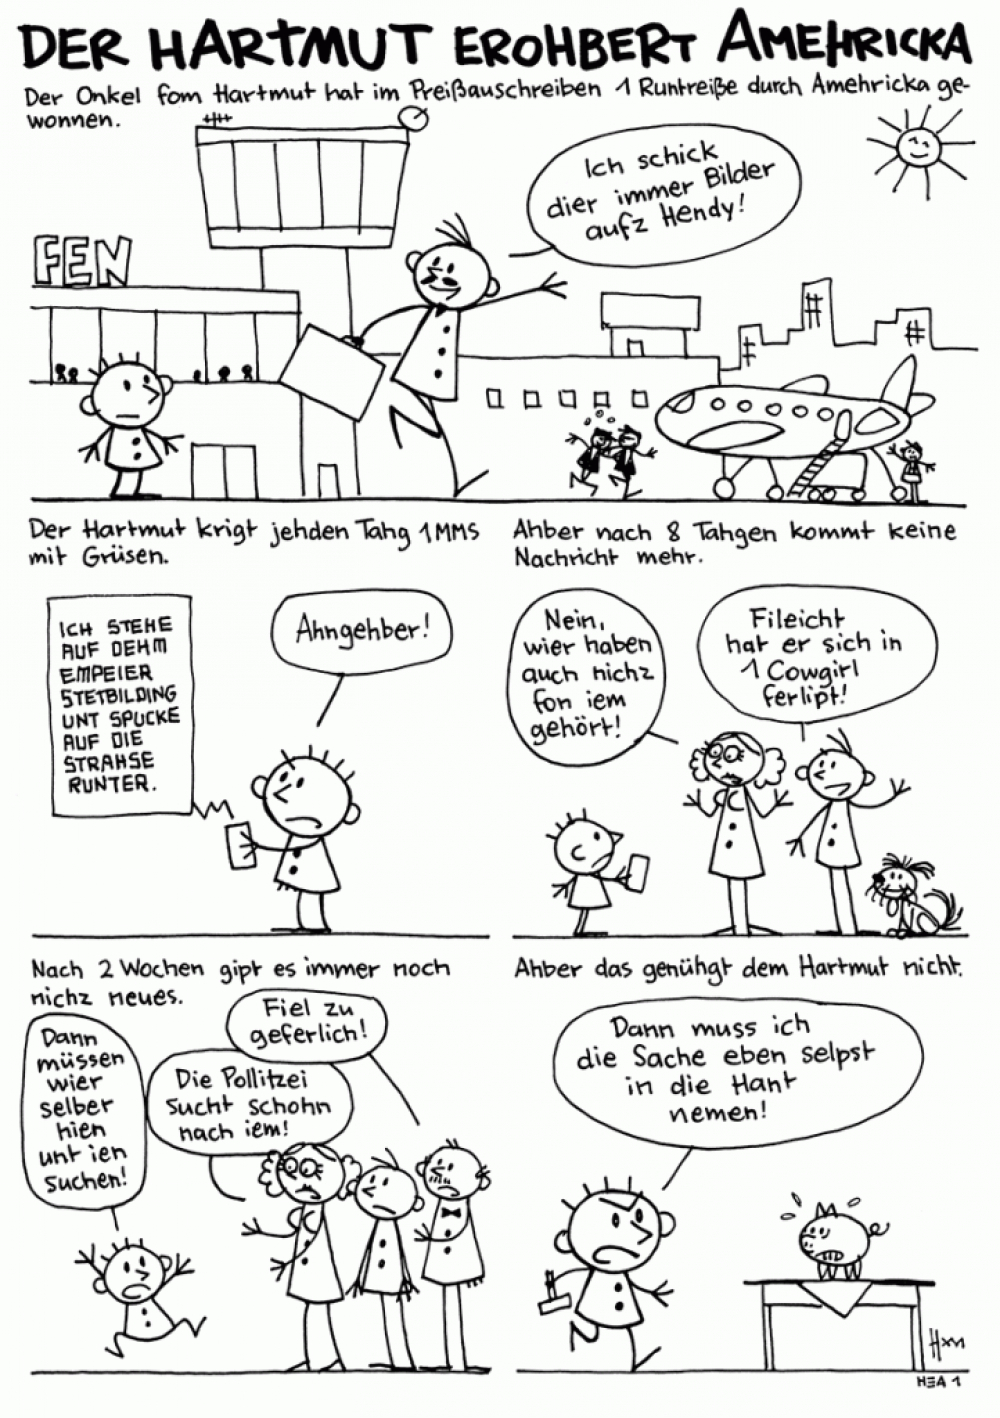 DER HARTMUT EROHBERT AMEHRICKA
Der Onkel fom Hartmut hat im Preißauschreiben 1 Runtreiße durch Amehricka ge-
wonnen.
Ich schick
dier immer Bilder
aufz Hendy!
FEN
Der Hartmut krigt jehden Tahg 1 MMS
mit Grüsen.
ICH STEHE
AUF DEHM
EMPEIER
STETBILDING
UNT SPUCKE
AUF DIE
STRAHSE
RUNTER.
Ahngehber!
Ahber nach 8 Tahgen kommt keine
Nachricht mehr.
Nein,
wier haben
auch nichz
fon iem
gehört!
Fileicht
hat er sich in
1 Cowgirl
ferlipt!
Nach 2 Wochen gipt es immer noch
nichz neues.
Dann
müssen
wier
selber
hien
unt ien
suchen!
Die Pollitzei
sucht schohn
nach iem!
Fiel zu
geferlich!
Ahber das genühgt dem Hartmut nicht.
Dann muss ich
die Sache eben selpst
in die Hant
nemen!
HEA 1